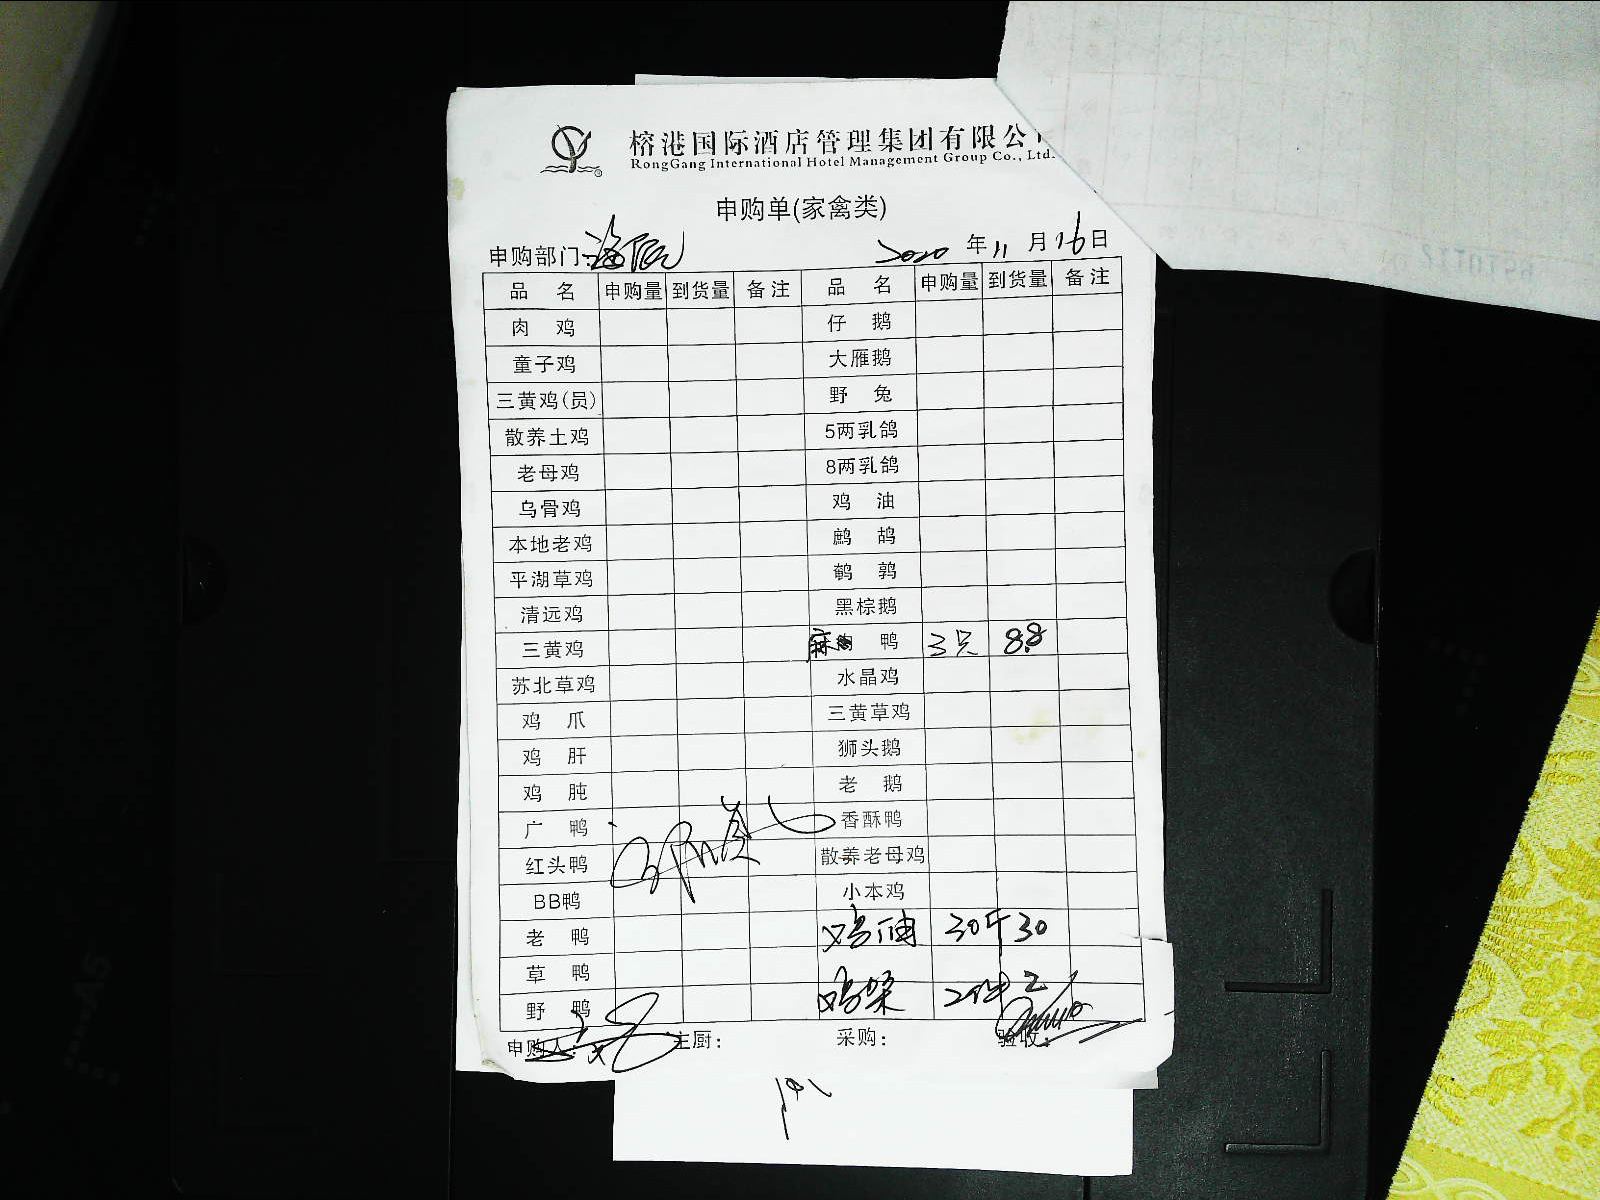 榕港国际酒店管理集团有限公
RongGang International Hotel Management Group Co., Ltd.
申购单(家禽类)
申购部门: 2020 年 11 月 16 日
品 名 申购量 到货量 备注 品 名 申购量 到货量 备注
肉 鸡 仔 鹅
童子鸡 大雁鹅
三黄鸡(员) 野 兔
散养土鸡 5两乳鸽
老母鸡 8两乳鸽
乌骨鸡 鸡 油
本地老鸡 鹧 鸪
平湖草鸡 鹌 鹑
清远鸡 黑棕鹅
三黄鸡 麻 鸭 3只 8.8
苏北草鸡 水晶鸡
鸡 爪 三黄草鸡
鸡 肝 狮头鹅
鸡 肫 老 鹅
广 鸭 香酥鸭
红头鸭 散养老母鸡
BB鸭 小本鸡
老 鸭 鸡油 30斤 30
草 鸭
野 鸭 鸡 2件 2
申购人: 主厨: 采购: 验收: